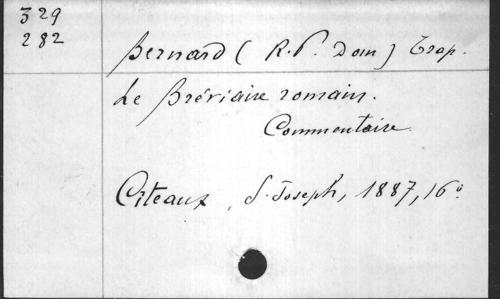 329
282
Bernard (R. P. Dom) Trap.
Le Bréviaire romain.
Commentaire
Citeaux, S. Joseph, 1887, 16°